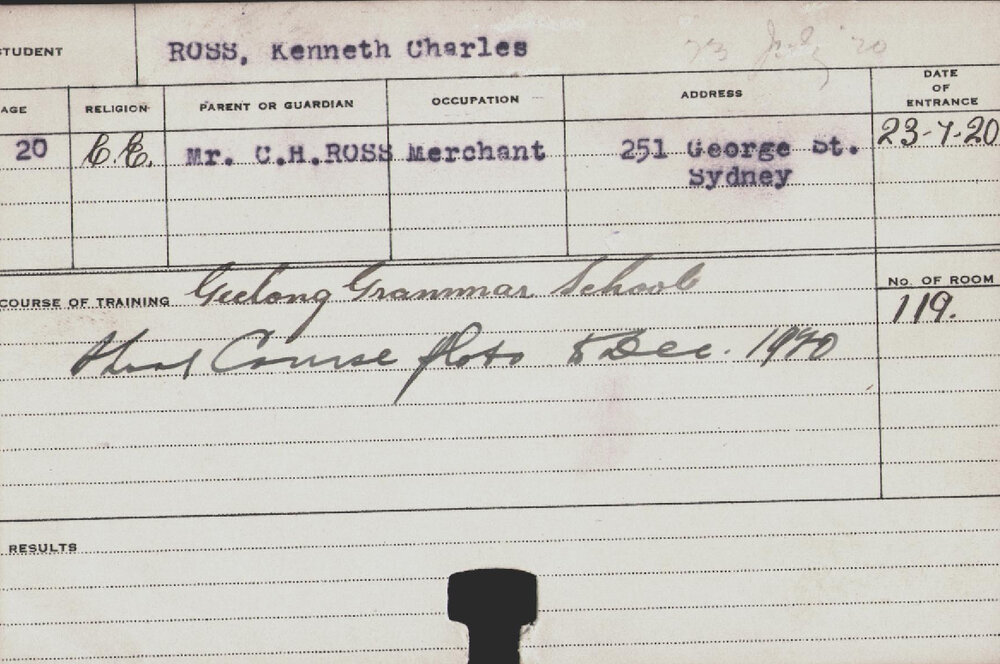 STUDENT ROSS, Kenneth Charles 23 July '20
AGE RELIGION PARENT OR GUARDIAN OCCUPATION ADDRESS DATE OF ENTRANCE
20 C.E. Mr. C.H.ROSS Merchant 251 George St. 23-7-20
Sydney
COURSE OF TRAINING Geelong Grammar School
No. OF ROOM
119.
Course to Dec. 1920
RESULTS